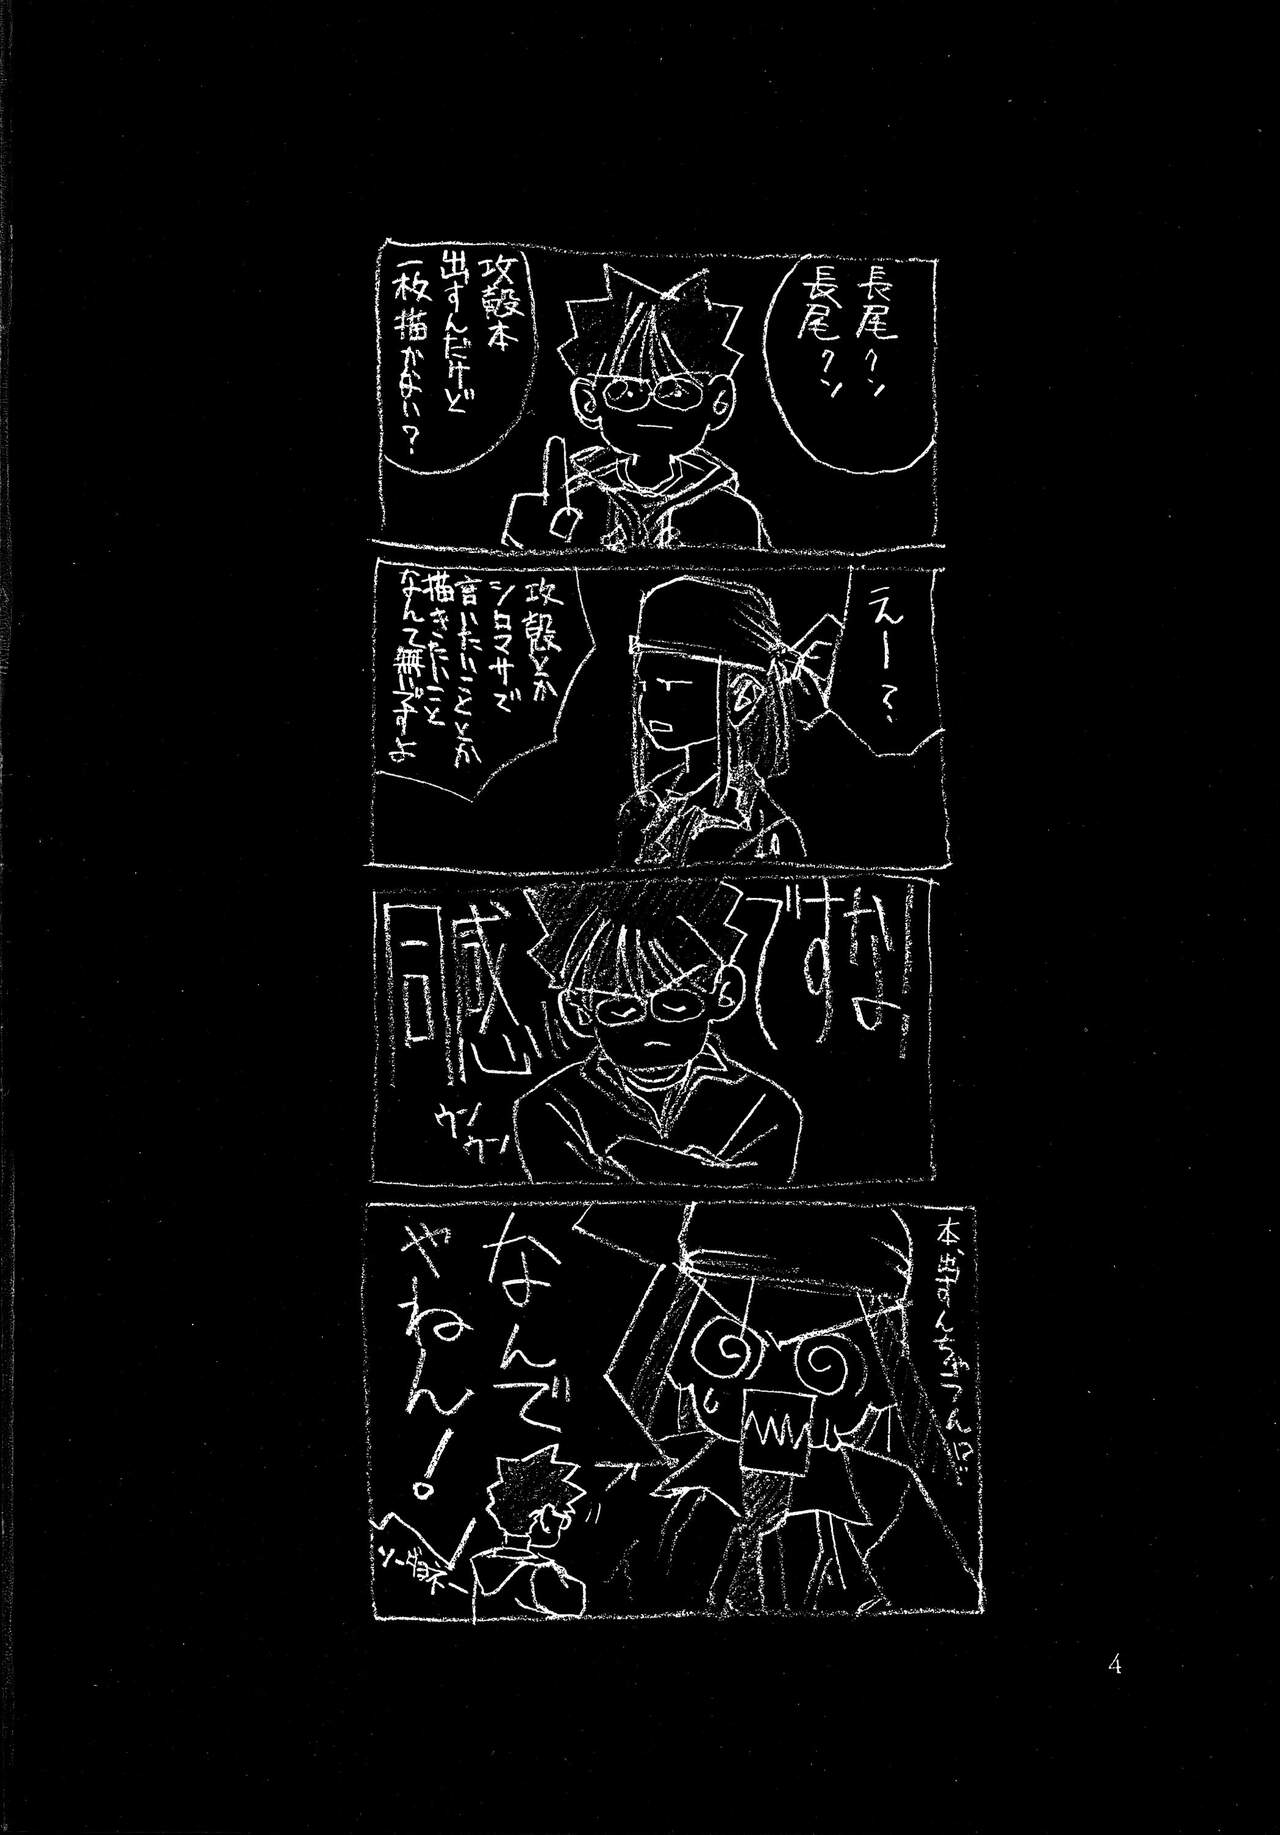 長尾クン
長尾クン
攻殻本
出すんだけど
一枚描かない?
えーて、
攻殻とか
シロマサで
言いたいこととか
描きたいこと
なんて無いですよ
なよ
です
同感
ウーン
ウーン
本、出すんちゃうん!?
なんで
やねん!
4